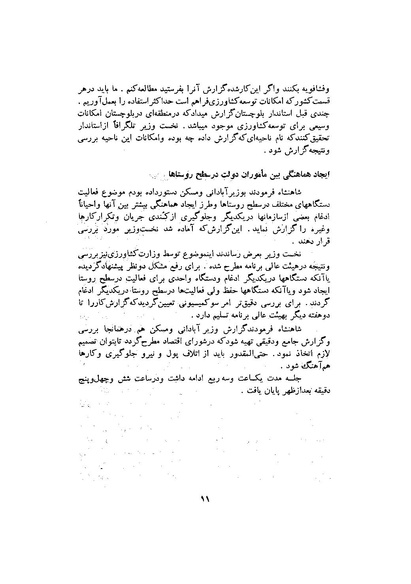 وفشافویه بکنند واگر این‌کارشده‌گزارش آنرا بفرستید مطالعه‌کنم . ما باید درهر
قسمت‌کشورکه امکانات توسعه‌کشاورزی‌فراهم است حداکثراستفاده را بعمل‌آوریم .
چندی قبل استاندار بلوچستان‌گزارش میدادکه درمنطقه‌ای دربلوچستان امکانات
وسیعی برای توسعه‌کشاورزی موجود میباشد . نخست وزیر تلگرافاً ازاستاندار
تحقیق‌کنندکه نام ناحیه‌ای‌که‌گزارش داده چه بوده وامکانات این ناحیه بررسی
ونتیجه‌گزارش شود .
ایجاد هماهنگی بین مأموران دولت درسطح روستاها .
شاهنشاه فرمودند بوزیرآبادانی ومسکن دستورداده بودم موضوع فعالیت
دستگاههای مختلف درسطح روستاها وطرز ایجاد هماهنگی بیشتر بین آنها واحیاناً
ادغام بعضی ازسازمانها دریکدیگر وجلوگیری ازکندی جریان وتکرارکارها
وغیره را گزارش نماید . این‌گزارش‌که آماده شد نخست‌وزیر مورد بررسی
قرار دهند .
نخست وزیر بعرض رساندند اینموضوع توسط وزارت‌کشاورزی‌نیزبررسی
ونتیجه درهیئت عالی برنامه مطرح شده . برای رفع مشکل دونظر پیشنهادگردیده
یاآنکه دستگاهها دریکدیگر ادغام ودستگاه واحدی برای فعالیت درسطح روستا
ایجاد شود ویاآنکه دستگاهها حفظ ولی فعالیت‌ها درسطح روستا دریکدیگر ادغام
گردند . برای بررسی دقیق‌تر امر سوکمیسیونی تعیین‌گردیدکه‌گزارش‌کاررا تا
دوهفته دیگر بهیئت عالی برنامه تسلیم دارد .
شاهنشاه فرمودندگزارش وزیر آبادانی ومسکن هم درهمانجا بررسی
وگزارش جامع ودقیقی تهیه شودکه درشورای اقتصاد مطرح‌گردد تابتوان تصمیم
لازم اتخاذ نمود . حتی‌المقدور باید از اتلاف پول و نیرو جلوگیری وکارها
هم‌آهنگ شود .
جلسه مدت یکساعت وسه ربع ادامه داشت ودرساعت شش وچهل‌وپنج
دقیقه بعدازظهر پایان یافت .
۱۱